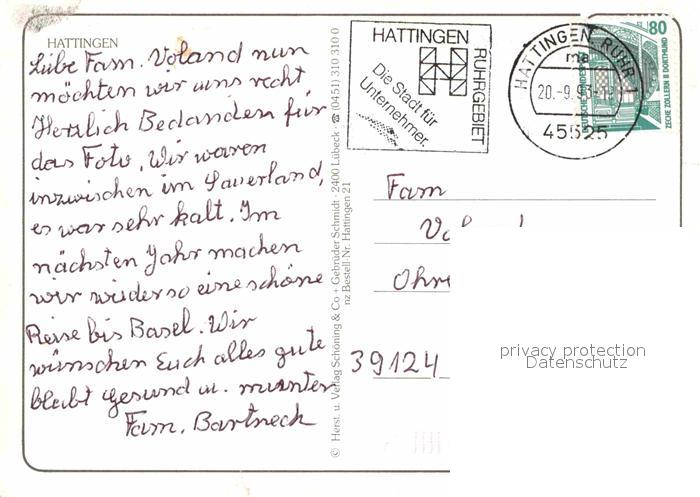 HATTINGEN
Liebe Fam. Voland nun
möchten wir uns recht
Herzlich Bedanden für
das Foto. Wir waren
inzwischen im Sauerland,
es war sehr kalt. Im
nächsten Jahr machen
wir wieder so eine schöne
Reise bis Basel. Wir
wünschen Euch alles gute
bleibt gesund u. munter
Fam. Bartneck
© Herst. u. Verlag Schöning & Co + Gebrüder Schmidt · 2400 Lübeck · ☎ (0451) 310 310 0
nz Bestell-Nr. Hattingen 21
HATTINGEN
RUHRGEBIET
Die Stadt für
Unternehmer.
HATTINGEN, RUHR 1
ma
20.-9.93
45525
80
DEUTSCHE BUNDESPOST
ZECHE ZOLLERN II DORTMUND
Fam
39124
privacy protection
Datenschutz